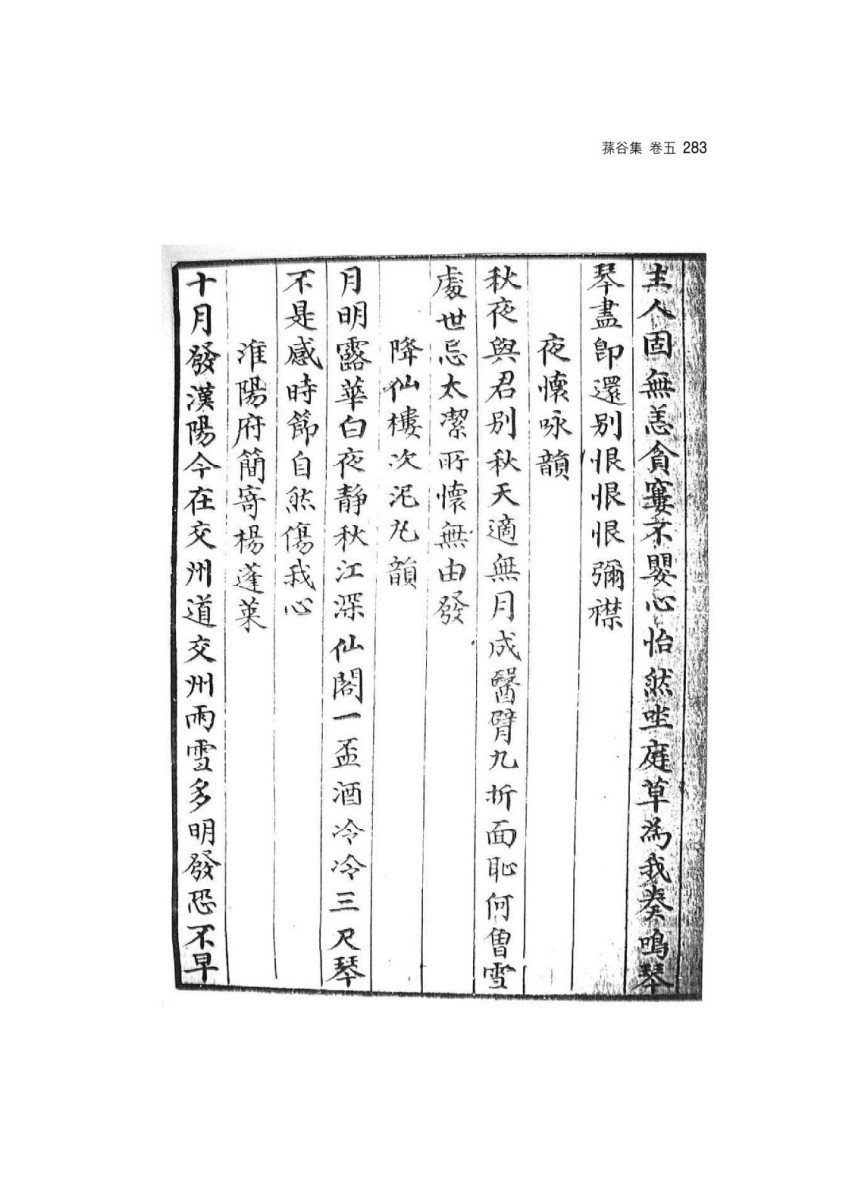 蓀谷集 卷五 283
主人固無恙貪窶不嬰心怡然坐庭草為我奏鳴琴
琴盡即還別恨恨恨彌襟
夜懷咏韻
秋夜與君別秋天適無月成醫臂九折面恥何曾雪
處世忌太潔所懷無由發
降仙樓次泥丸韻
月明露華白夜靜秋江深仙閣一盃酒冷冷三尺琴
不是感時節自然傷我心
淮陽府簡寄楊蓬萊
十月發漢陽今在交州道交州雨雪多明發恐不早